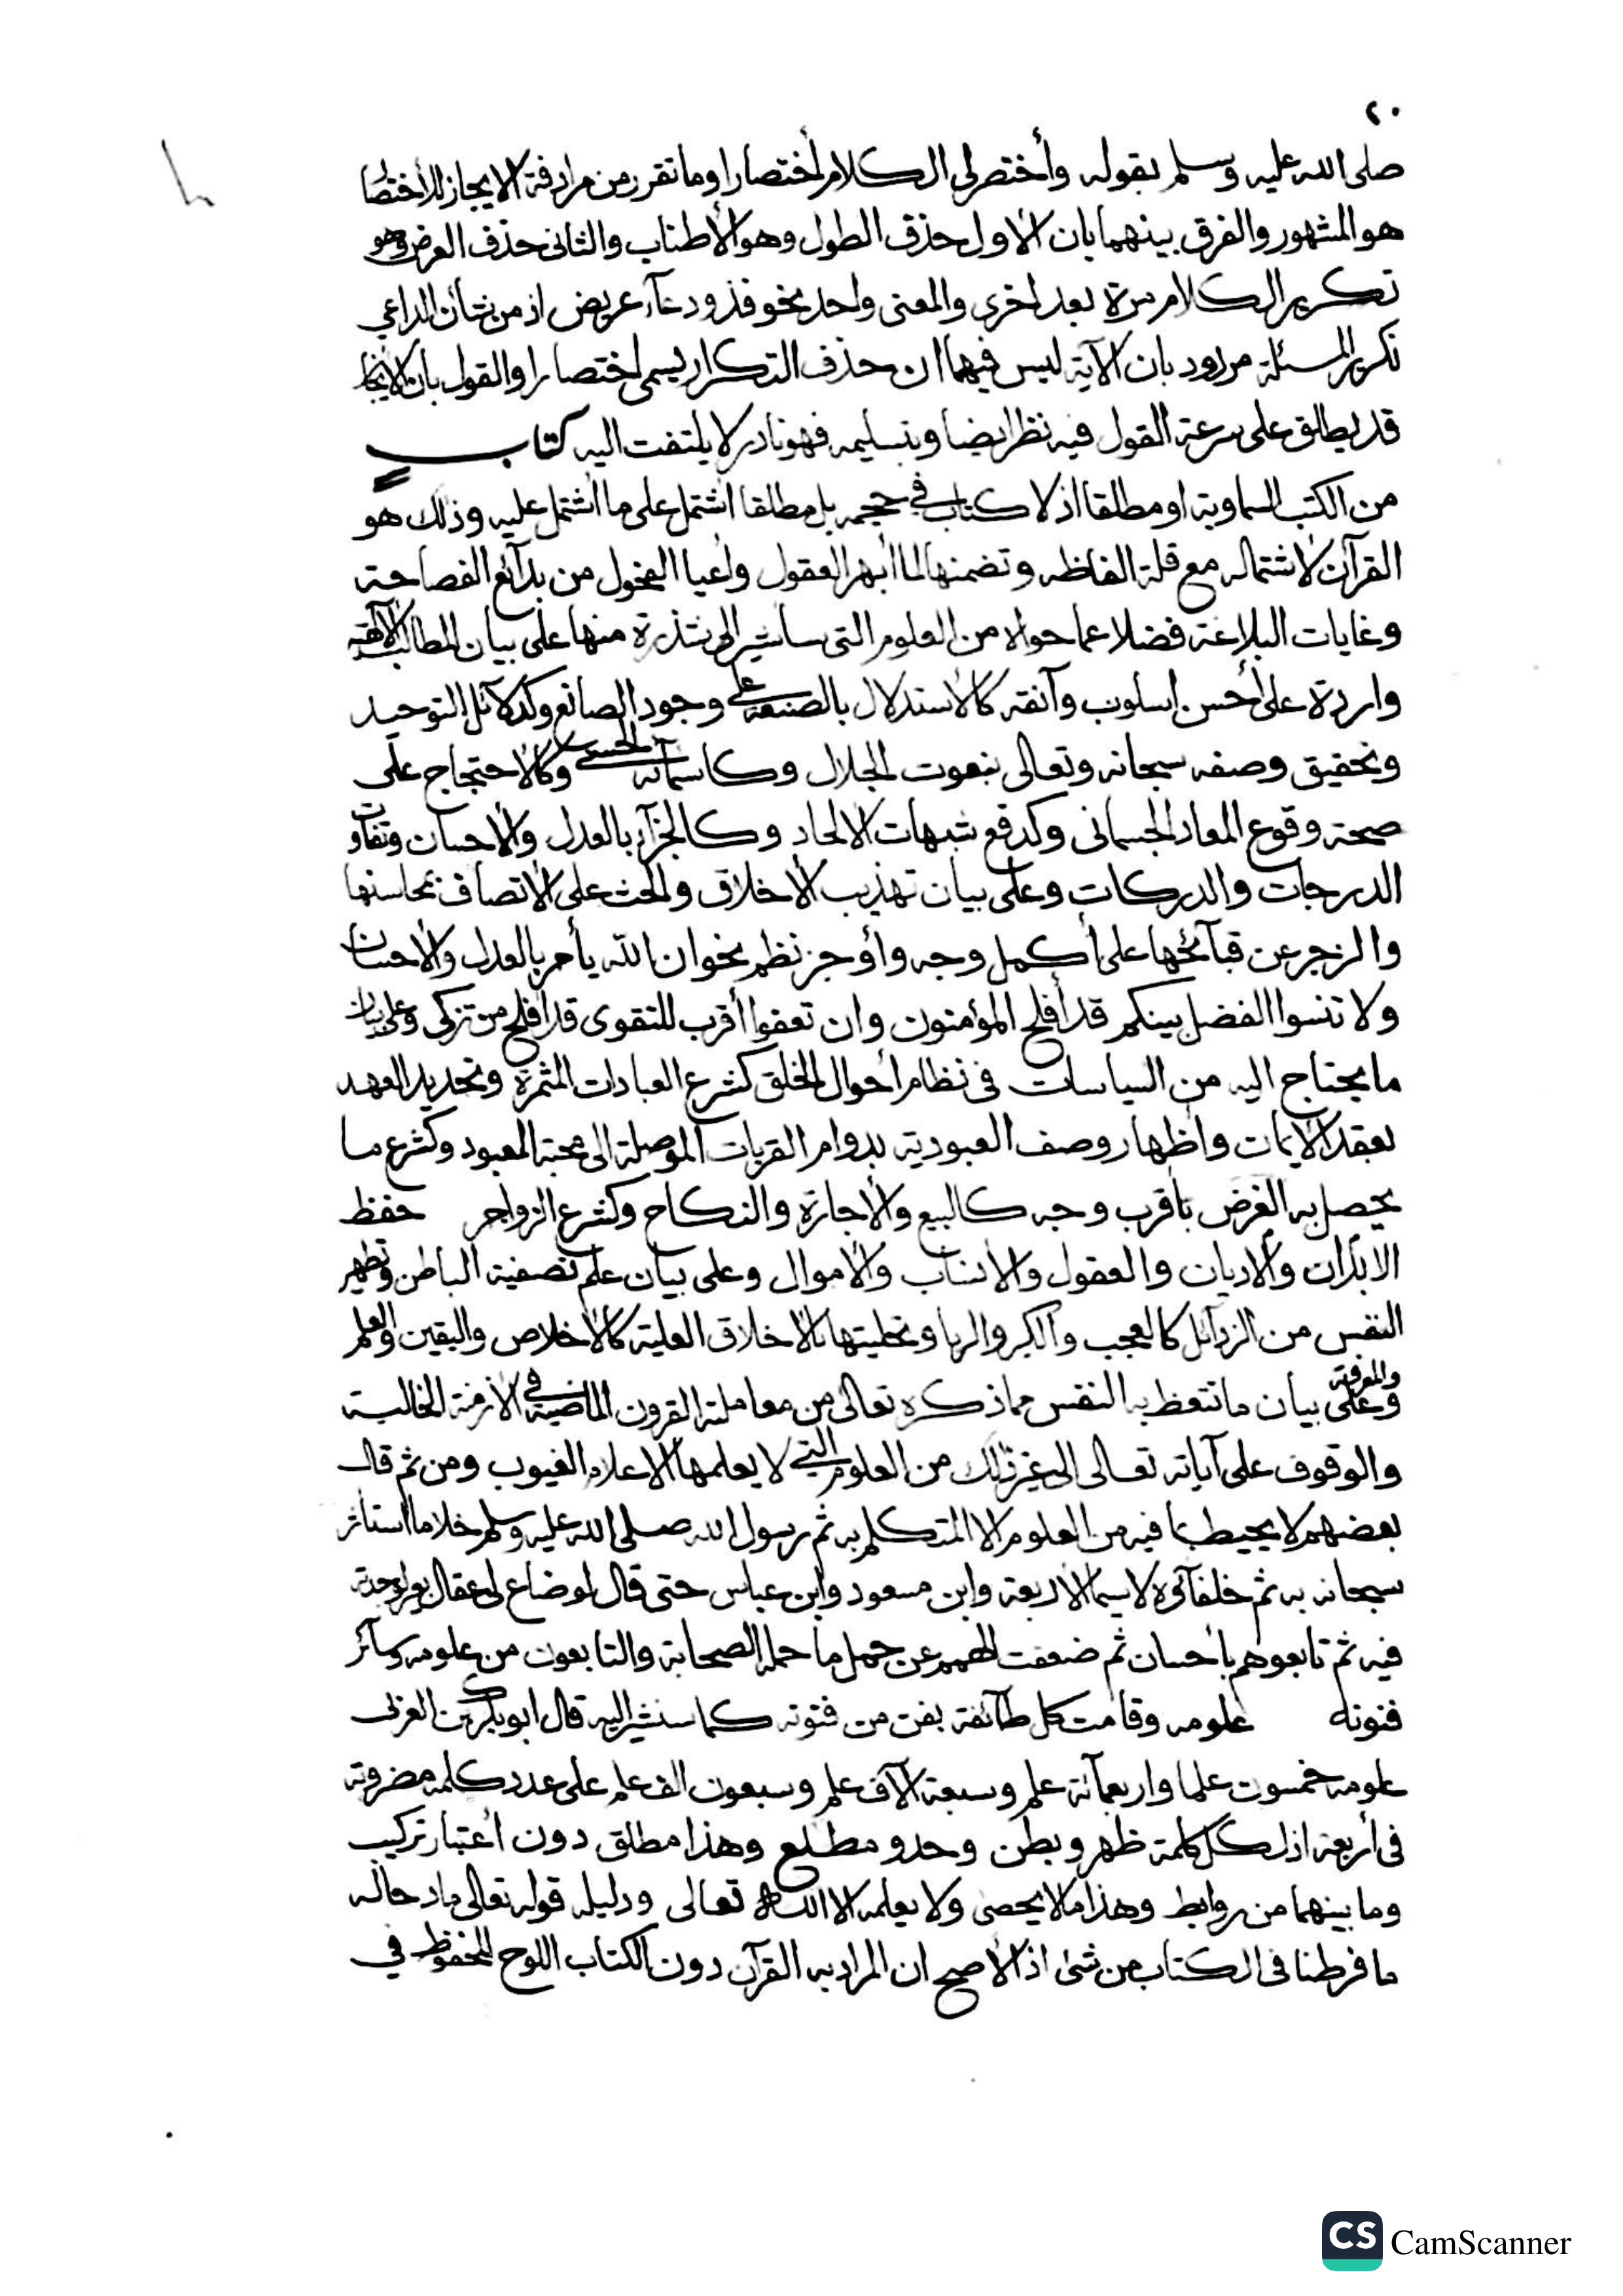 ٢٠
صلى الله عليه وسلم بقوله وأختصر لى الكلام أختصارا وما تقرر من مرادفة الايجاز للأختصا
هو المشهور والفرق بينهما بان الاول حذف الطول وهو الأطناب والثانى حذف العرض وهو
تكرير الكلام مرة بعد اخرى والمعنى واحد نحو فذو دعآء عريض اذ من شأن الداعي
تكرير المسئلة مردود بان الآية ليس فيها ان حذف التكرار يسمى اختصارا والقول بان الايجا
قد يطلق على سرعة القول فيه نظر ايضا وبتسليمه فهو نادر لا يلتفت اليه كتاب
من الكتب السماوية او مطلقا اذ لا كتاب في حجمه بل مطلقا اشتمل على ما اشتمل عليه وذلك هو
القرآن لاشتماله مع قلة الفاظه وتضمنها لما أبهر العقول وأعيا الفحول من بدآئع الفصاحة
وغايات البلاغة فضلا عما حواه من العلوم التى سأشير الى نتذرة منها على بيان المطالب الالهية
واردة على أحسن اسلوب وآنقه كالاستدلال بالصنعة على وجود الصانع وكدلآئل التوحيد
وتحقيق وصفه سبحانه وتعالى بنعوت الجلال وكاسمآئه الحسنى وكالاحتجاج على
صحة وقوع المعاد الجسمانى وكدفع شبهات الالحاد وكالجزآء بالعدل والاحسان وتفاوت
الدرجات والدركات وعلى بيان تهذيب الأخلاق والحث على الاتصاف بمحاسنها
والزجر عن قبآئحها على أكمل وجه وأوجز نظم نحو ان الله يأمر بالعدل والاحسان
ولا تنسوا الفضل بينكم قد أفلح المؤمنون وان تعفوا أقرب للتقوى قد افلح من تزكى وعلى بيان
ما يحتاج اليه من السياسات فى نظام أحوال الخلق كشرع العبادات المثمرة وتجديد العهد
لعقد الايمان واظهار وصف العبودية بدوام القربات الموصلة الى محبة المعبود وكشرع ما
يحصل به الغرض بأقرب وجه كالبيع والاجارة والنكاح وكشرع الزواجر حفظ
الابدان والأديان والعقول والانساب والأموال وعلى بيان علم تصفية الباطن وتطهير
النفس من الرذآئل كالعجب والكبر والريا وتحليتها بالاخلاق العلية كالاخلاص واليقين والعلم
والمعرفة
وعلى بيان ما تتعظ به النفس مما ذكره تعالى من معاملة القرون الماضية في الازمنة الخالية
والوقوف على آياته تعالى الى غير ذلك من العلوم التي لا يعلمها الا علام الغيوب ومن ثم قال
بعضهم لا يحيط بما فيه من العلوم الا المتكلم به ثم رسول الله صلى الله عليه وسلم خلا ما استأثر
سبحانه به ثم خلفآؤه لا سيما الاربعة وابن مسعود وابن عباس حتى قال لو ضاع لى عقال بعير لوجدته
فيه ثم تابعوهم بأحسان ثم ضعفت الهمم عن حمل ما حمله الصحابة والتابعون من علومه وسآئر
فنونه علومه وقامت كل طآئفة بفن من فنونه كما سنشير اليه قال ابو بكر بن العربى
علومه خمسون علما واربعمآئة علم وسبعة آلآف علم وسبعون الف علم على عدد كلمه مضروبة
فى أربعة اذ لكل كلمة ظهر وبطن وحد ومطلع وهذا مطلق دون اعتبار تركيب
وما بينهما من روابط وهذا مالا يحصى ولا يعلمه الا الله تعالى ودليله قوله تعالى
ما فرطنا فى الكتاب من شئ اذ الأصح ان المراد به القرآن دون الكتاب اللوح المحفوظ في
CS CamScanner